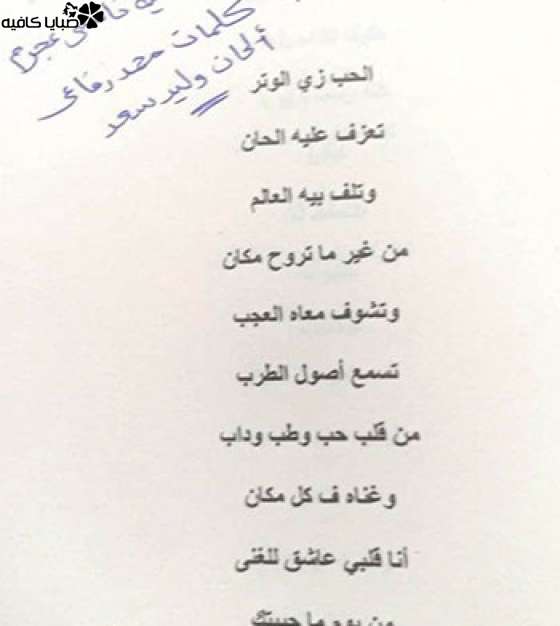 صبايا كافيه
عجرم
كلمات محمد رفاعى
ألحان وليد سعد
الحب زي الوتر
تعزف عليه الحان
وتلف بيه العالم
من غير ما تروح مكان
وتشوف معاه العجب
تسمع أصول الطرب
من قلب حب وطب وداب
وغناه ف كل مكان
أنا قلبي عاشق للغنى
من يوم ما حبيتك